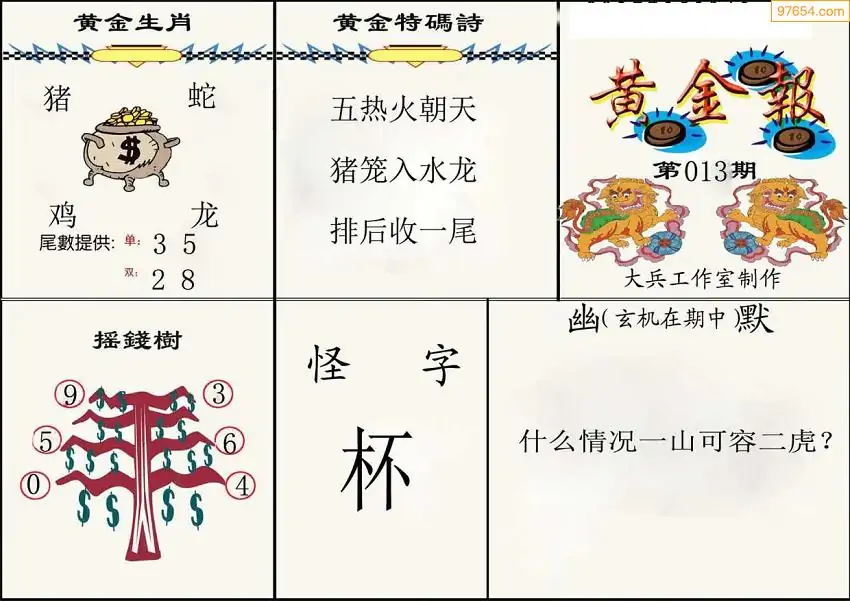 97654.com
黄金生肖
猪 蛇
$
鸡 龙
尾數提供: 单: 3 5
双: 2 8
黄金特碼詩
五热火朝天
猪笼入水龙
排后收一尾
黄金報
10
10
10
第013期
大兵工作室制作
摇錢樹
9 3
5 6
0 4
怪 字
杯
幽(玄机在期中)默
什么情况一山可容二虎?